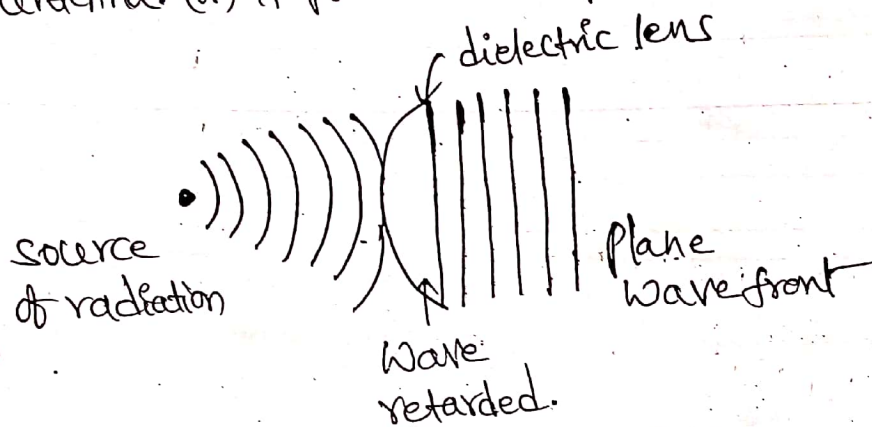 dielectric lens
source
of radiation
Plane
Wavefront
Wave
retarded.